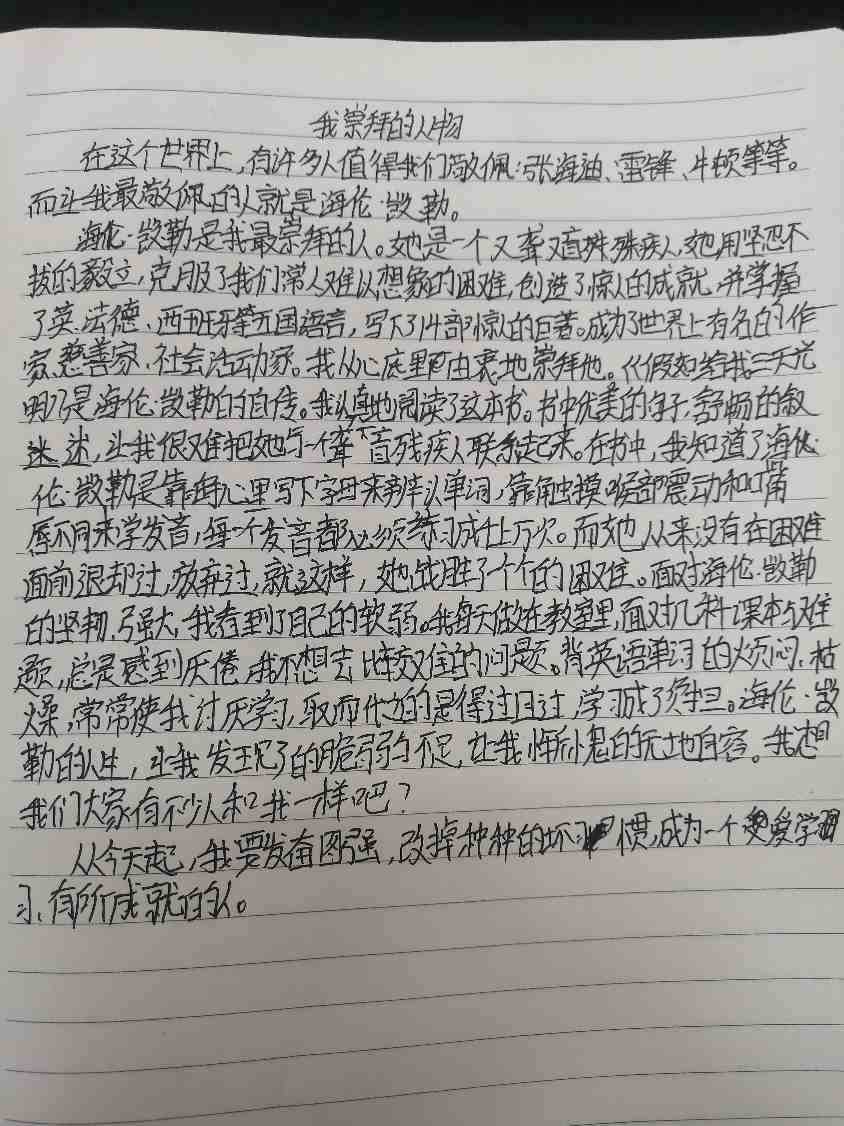 我崇拜的人物
在这个世界上,有许多人值得我们敬佩:张海迪、雷锋、牛顿等等。
而让我最敬佩的人就是海伦·凯勒。
海伦·凯勒是我最崇拜的人。她是一个又聋又盲残疾人,她用坚忍不
拔的毅立,克服了我们常人难以想象的困难,创造了惊人的成就,并掌握
了英、法德、西班牙等五国语言,写下了14部惊人的巨著。成为了世界上有名的作
家、慈善家、社会活动家。我从心底里由衷地崇拜他。《假如给我三天光
明》是海伦·凯勒的自传。我认真地阅读了这本书。书中优美的字子,舒畅的叙
述,让我很难把她与一个聋盲残疾人联系起来。在书中,我知道了海伦·
伦·凯勒是靠每心里写下字母来辨认单词,靠触摸喉部震动和嘴
唇不同来学发音,每一个发音都必须练习成千上万次。而她从来没有在困难
面前退却过,放弃过,就这样,她战胜了个个的困难。面对海伦·凯勒
的坚韧、强大,我看到了自己的软弱。我每天做在教室里,面对几科课本与难
题,总是感到厌倦,我不想去比较难的问题。背英语单词的烦闷、枯
燥,常常使我讨厌学习,取而代之的是得过且过,学习成了负担。海伦·凯
勒的人生,让我发现了的脆弱与不足,让我惭愧的无地自容。我想
我们大家有不少人和我一样吧?
从今天起,我要发奋图强,改掉种种的坏习惯,成为一个爱学
习、有所成就的人。